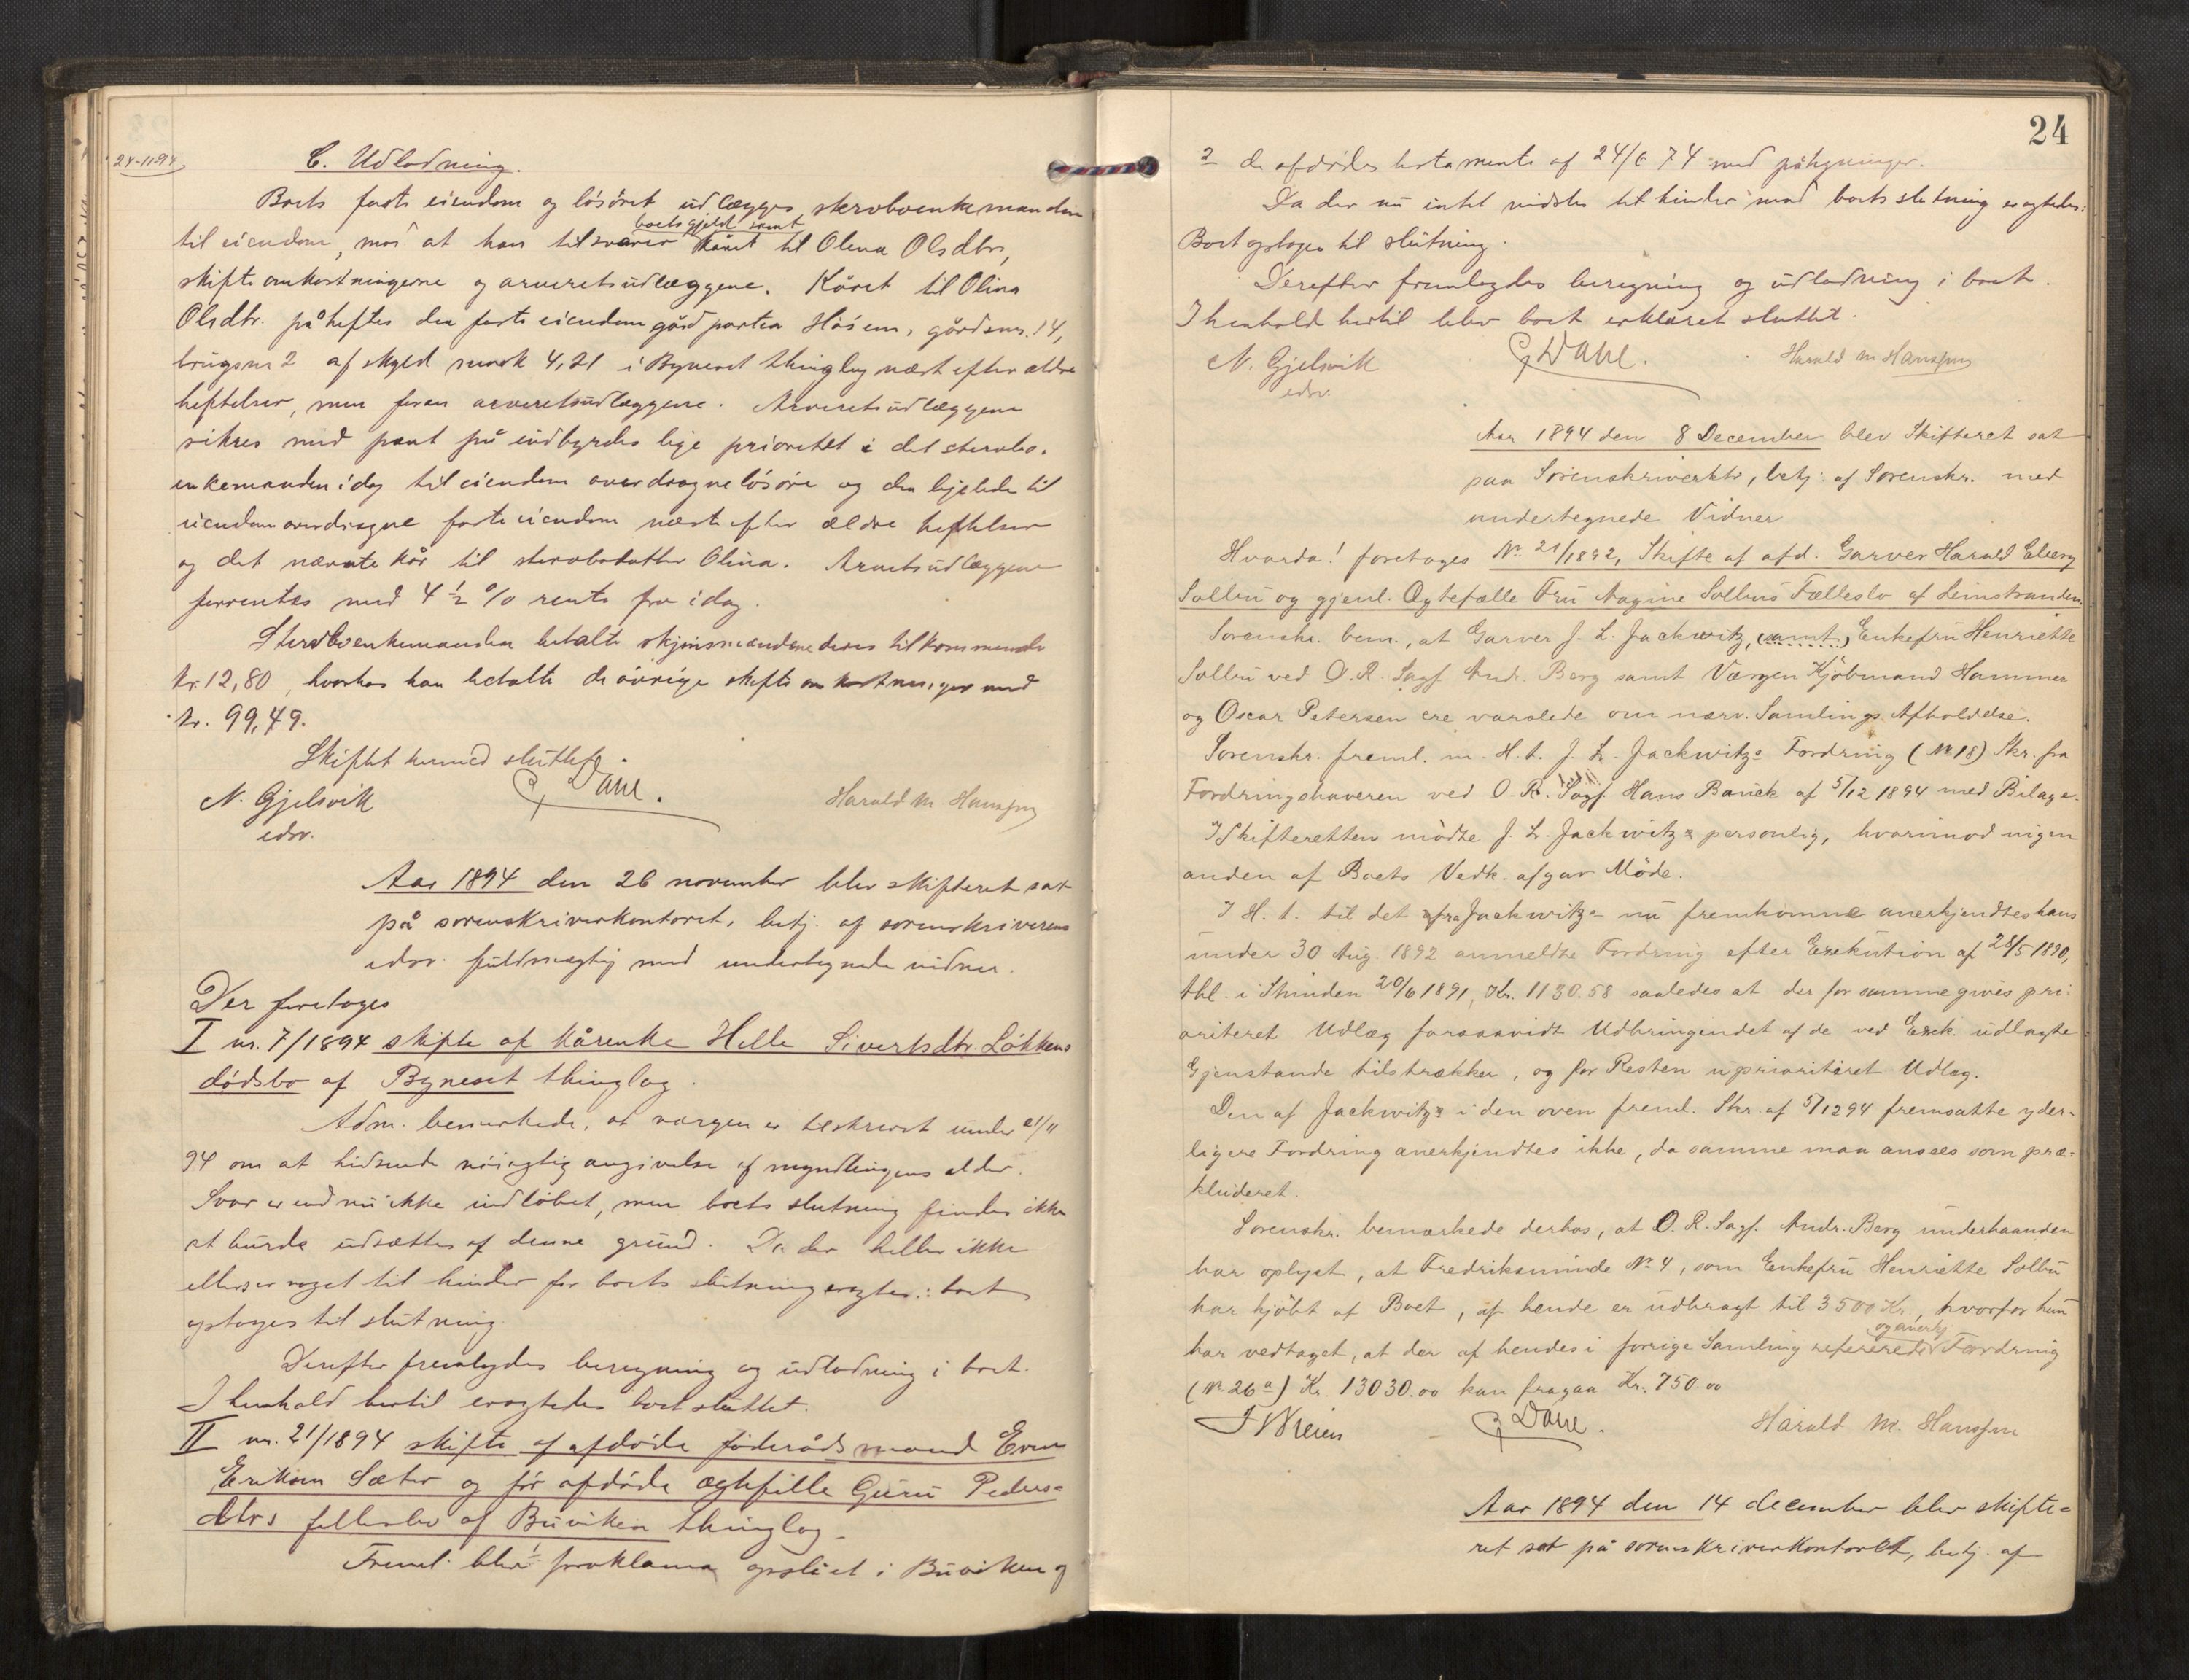 24-11-94
C. Udlodning.
Boets faste eiendom og løsøret udlægges stervboenkemanden
til eiendom, mod at han tilsvarer boets gjeld samt kåret til Olina Olsdtr,
skifteomkostningerne og arveretsudlæggene. Kåret til Olina
Olsdtr. påheftes den faste eiendom gårdparten Høsem, gårdsnr. 14,
brugsnr 2 af skyld mark 4,21 i Bynesets thinglag næst efter ældre
heftelser, men foran arveretsudlæggene. Arveretsudlæggene
sikres med pant på indbyrdes lige prioritet i det stervbo-
enkemanden idag til eiendom overdragne løsøre og den ligeledes til
eiendom overdragne faste eiendom næst efter ældre heftelser
og det nævnte kår til stervbodatter Olina. Arveretsudlæggene
forrentes med 4 ½ % rente fra idag.
Stervboenkemanden betalte skjønsmændene deres tilkommende
kr. 12,80, hvorhos han betalte de øvrige skifteomkostninger med
kr. 99,49.
Skiftet hermed sluttet.
N. Gjelsvik G Dahl. Harald M. Hanssen
edsv.
Aar 1894 den 26 november blev skifteret sat
på sorenskriverkontoret, betj. af sorenskriverens
edsv. fuldmægtig med undertegnede vidner.
Der foretoges
I nr. 7/1894 skifte af kårenke Helle Sivertsdtr. Løkkens
dødsbo af Byneset thinglag.
Adm. bemærkede, at værgen er tilskrevet under 21/11
94 om at hidsende nøiagtig angivelse af myndlingens alder.
Svar er endnu ikke indløbet, men boets slutning findes ikke
at burde udsættes af denne grund. Da der heller ikke
ellers er noget til hinder for boets slutning eragtes: boet
optages til slutning.
Derefter fremlagdes beregning og udlodning i boet.
I henhold hertil eragtedes boet sluttet.
II nr. 21/1894 skifte af afdøde føderådsmand Even
Eriksen Sæter og før afdøde ægtefælle Guru Peders-
dtrs fællesbo af Buviken thinglag.
Freml. blev 1/ proklama oplæst i Buviken og
24
2/ de afdødes testamente af 24/6 74 med påtegninger.
Da der nu intet vidstes til hinder mod boets slutning eragtedes:
Boet optages til slutning.
Derefter fremlagdes beregning og udlodning i boet.
I henhold hertil blev boet erklæret sluttet.
N. Gjelsvik G Dahl. Harald M Hanssen
edsv.
Aar 1894 den 8 December blev Skifteret sat
paa Sorenskriverktr, betj. af Sorenskr. med
undertegnede Vidner
Hvorda! foretoges No. 21/1892, Skifte af afd. Garver Harald Eberg
Solbu og gjenl. Ægtefælle Fru Aagine Solbus Fællesbo af Leinstranden
Sorenskr. bem., at Garver J. L. Jackwitz, (samt) Enkefru Henriette
Solbu ved O.R. Sagf. Andr. Berg samt Værgen Kjøbmand Hammer
og Oscar Petersen ere varslede om nærv. Samlings Afholdelse.
Sorenskr. freml. m. H. t. J. L. Jackwitz's Fordring (No 18) Skr. fra
Fordringshaveren ved O.R. Sagf. Hans Bauck af 5/12 1894 med Bilage.
I Skifteretten mødte J. L. Jackwitz personlig, hvorimod ingen
anden af Boets Vedk. afgav Møde.
I H. t. til det fra Jackwitz nu fremkomne anerkjendtes hans
under 30 Aug. 1892 anmeldte Fordring efter Exekution af 28/5 1890,
thl. i Strinden 20/6 1891, Kr. 1130.58 saaledes at der for samme gives pri-
oriteret Udlæg forsaavidt Udbringendet af de ved Exek. udlagte
Gjenstande tilstrækker, og for Resten uprioriteret Udlæg.
Den af Jackwitz i den oven freml. Skr. af 5/12 94 fremsatte yder-
ligere Fordring anerkjendtes ikke, da samme maa ansees som præ-
kluderet.
Sorenskr. bemærkede derhos, at O.R. Sagf. Andr. Berg underhaanden
har oplyst, at Fredriksminde No 4, som Enkefru Henriette Solbu
har kjøbt af Boet, af hende er udbragt til 3500 Kr., hvorfor hun
har vedtaget, at der af hendes i forrige Samling refererede og anerkj Fordring
(No 26 a) Kr. 13030.00 kan fragaa Kr. 750.00
G Dahl. Harald M. Hanssen
Aar 1894 den 14 december blev skifte-
ret sat på sorenskriverkontoret, betj. af